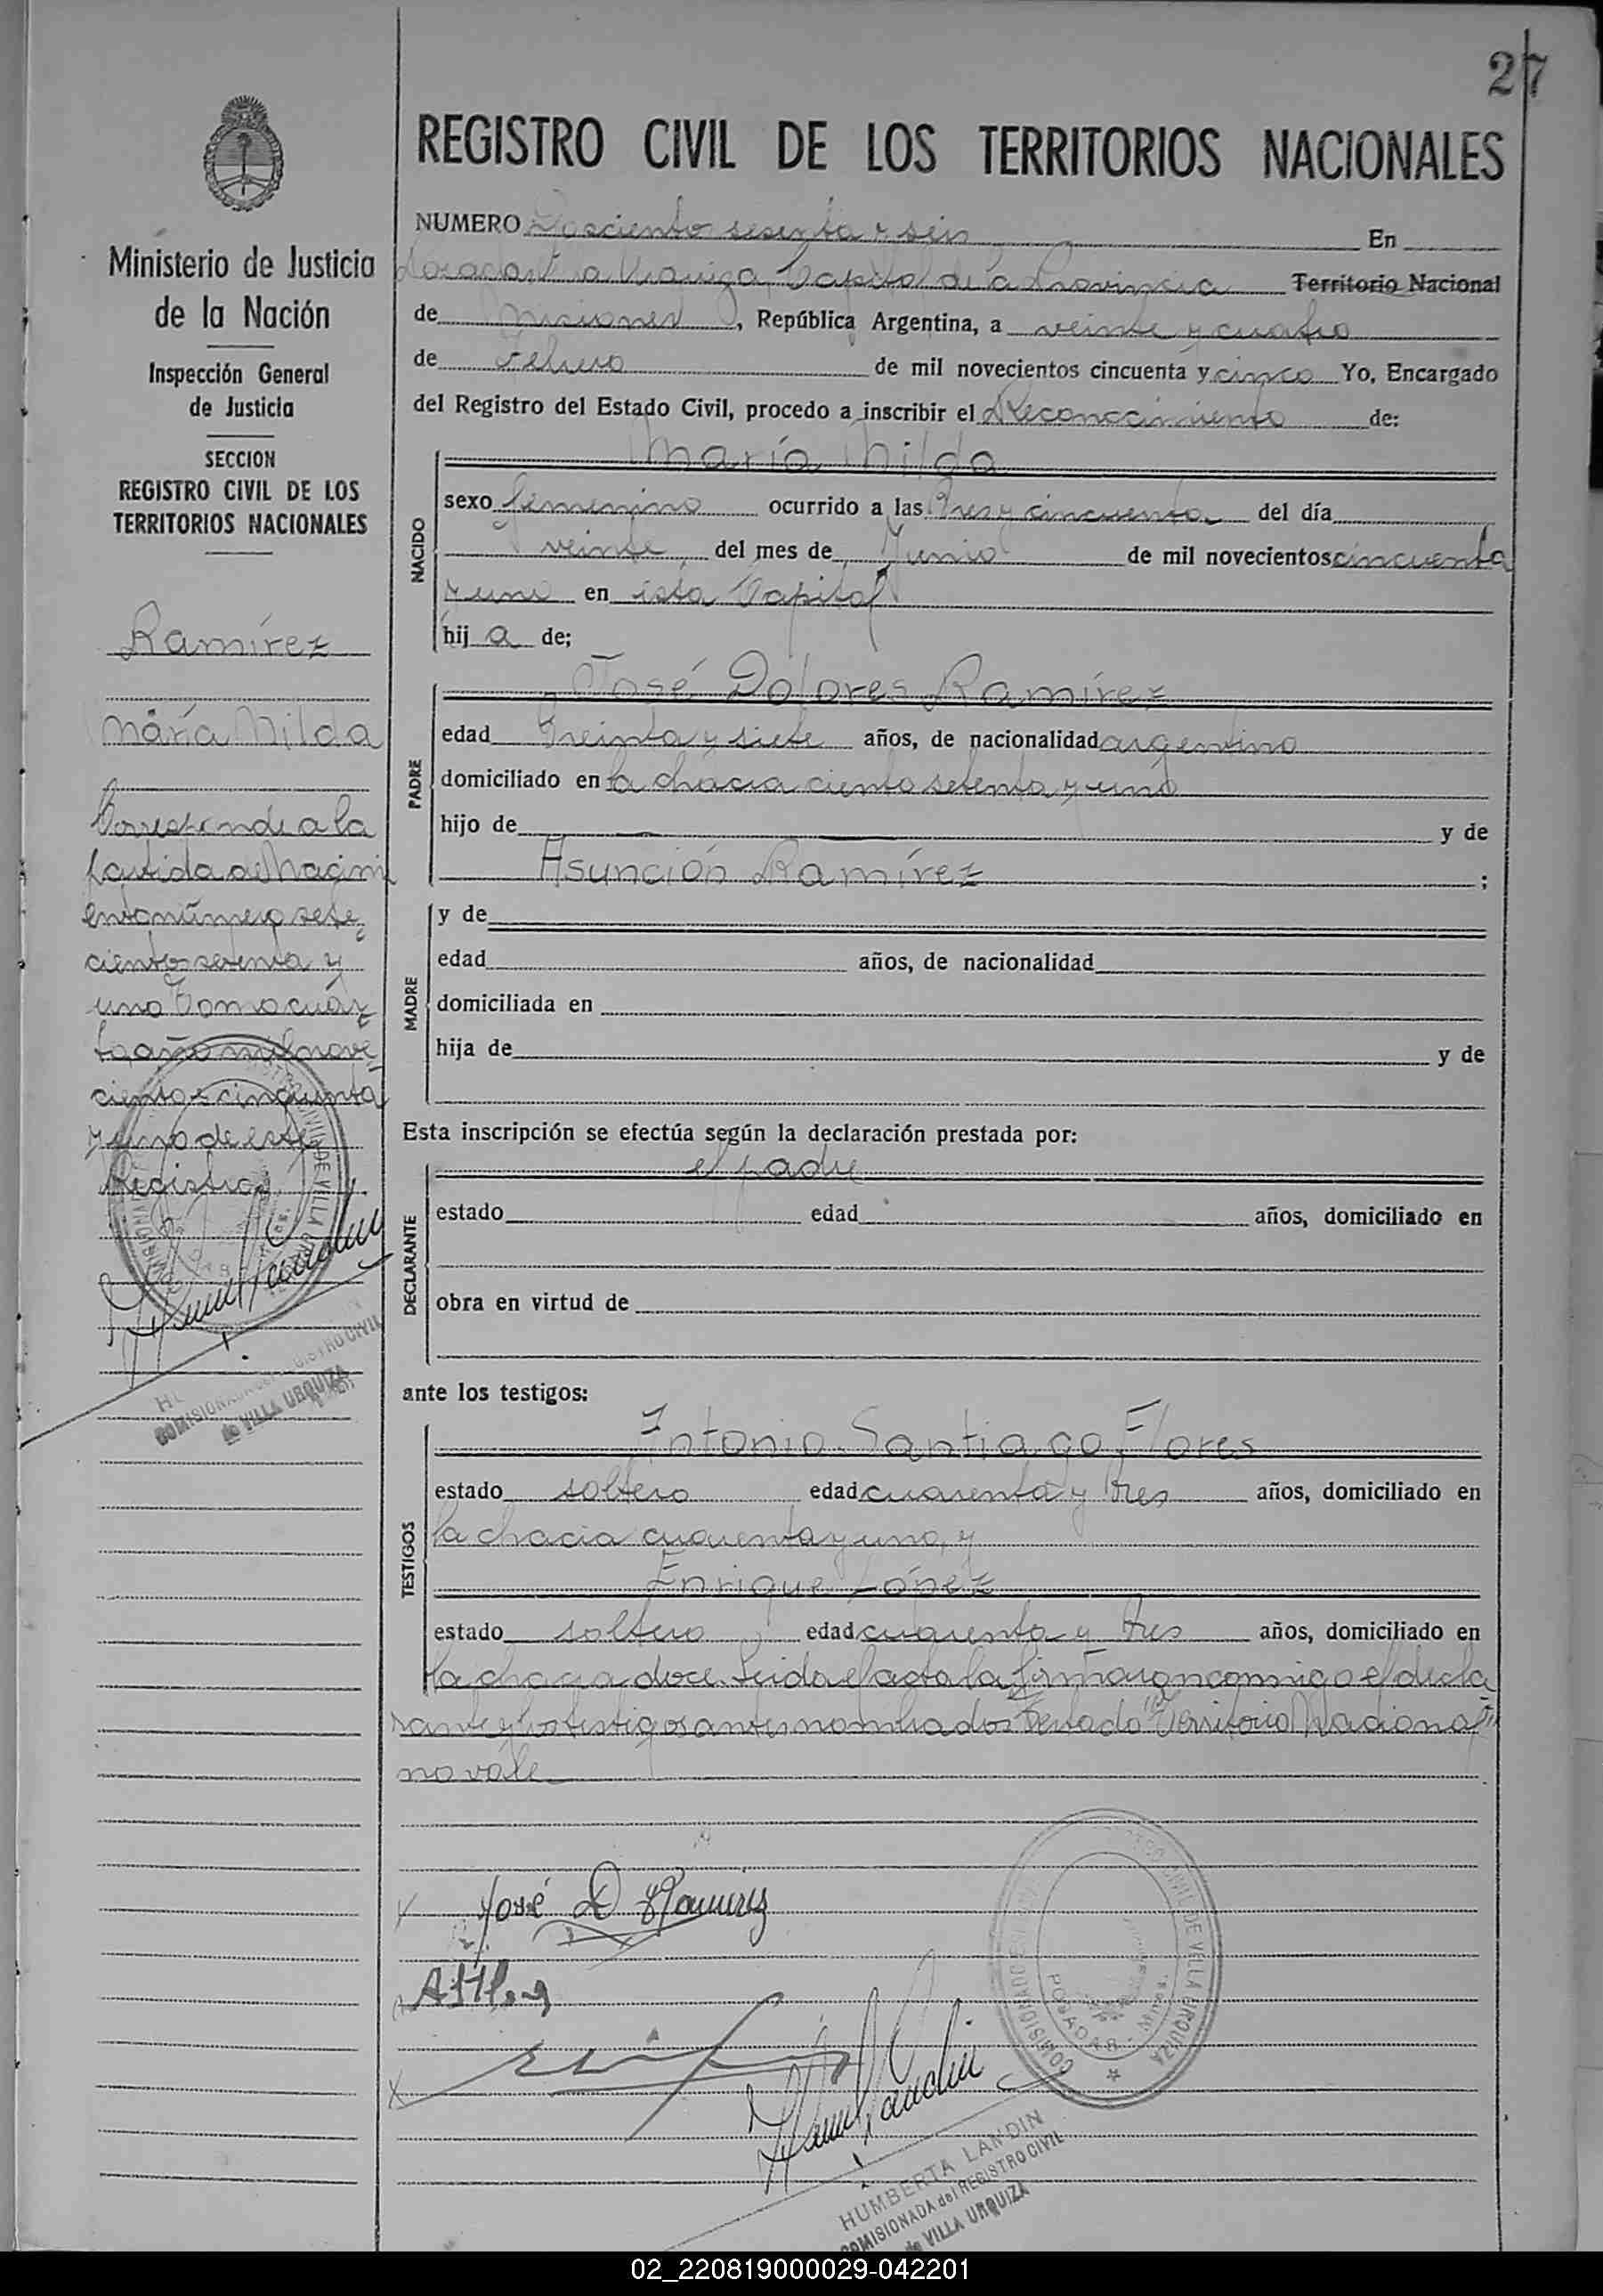 27
REGISTRO CIVIL DE LOS TERRITORIOS NACIONALES
Ministerio de Justicia
de la Nación
Inspección General
de Justicia
SECCION
REGISTRO CIVIL DE LOS
TERRITORIOS NACIONALES
Ramírez
María Nilda
Corresponde a la
partida de Nacimi
ento número sete
cientos setenta y
uno Tomo cuar
to año mil nove
cientos cincuenta
y uno de este
Registro
COMISIONADA del REGISTRO CIVIL
de VILLA URQUIZA
NUMERO Doscientos sesenta y seis En
Posadas Villa Urquiza Capital de la Provincia Territorio Nacional
de Misiones, República Argentina, a veinte y cuatro
de Febrero de mil novecientos cincuenta y cinco Yo, Encargado
del Registro del Estado Civil, procedo a inscribir el Reconocimiento de:
María Nilda
NACIDO
sexo femenino ocurrido a las Tres y cincuenta del día
veinte del mes de Junio de mil novecientos cincuenta
y uno en ésta Capital
hij a de;
José Dolores Ramírez
PADRE
edad Treinta y siete años, de nacionalidad argentino
domiciliado en la chacra ciento setenta y uno
hijo de y de
Asunción Ramírez ;
MADRE
y de
edad años, de nacionalidad
domiciliada en
hija de y de
Esta inscripción se efectúa según la declaración prestada por:
el padre
DECLARANTE
estado edad años, domiciliado en
obra en virtud de
ante los testigos:
Antonio Santiago Flores
TESTIGOS
estado soltero edad cuarenta y tres años, domiciliado en
la chacra cuarenta y uno, y
Enrique López
estado soltero edad cuarenta y tres años, domiciliado en
la chacra doce. Leida el acta la firmaron conmigo el decla
rante y los testigos antes nombrados Testado "Territorio Nacional"
no vale
José D Ramírez
COMISIONADO REGISTRO CIVIL DE VILLA URQUIZA
POSADAS
HUMBERTA LANDIN
COMISIONADA del REGISTRO CIVIL
de VILLA URQUIZA
02_220819000029-042201